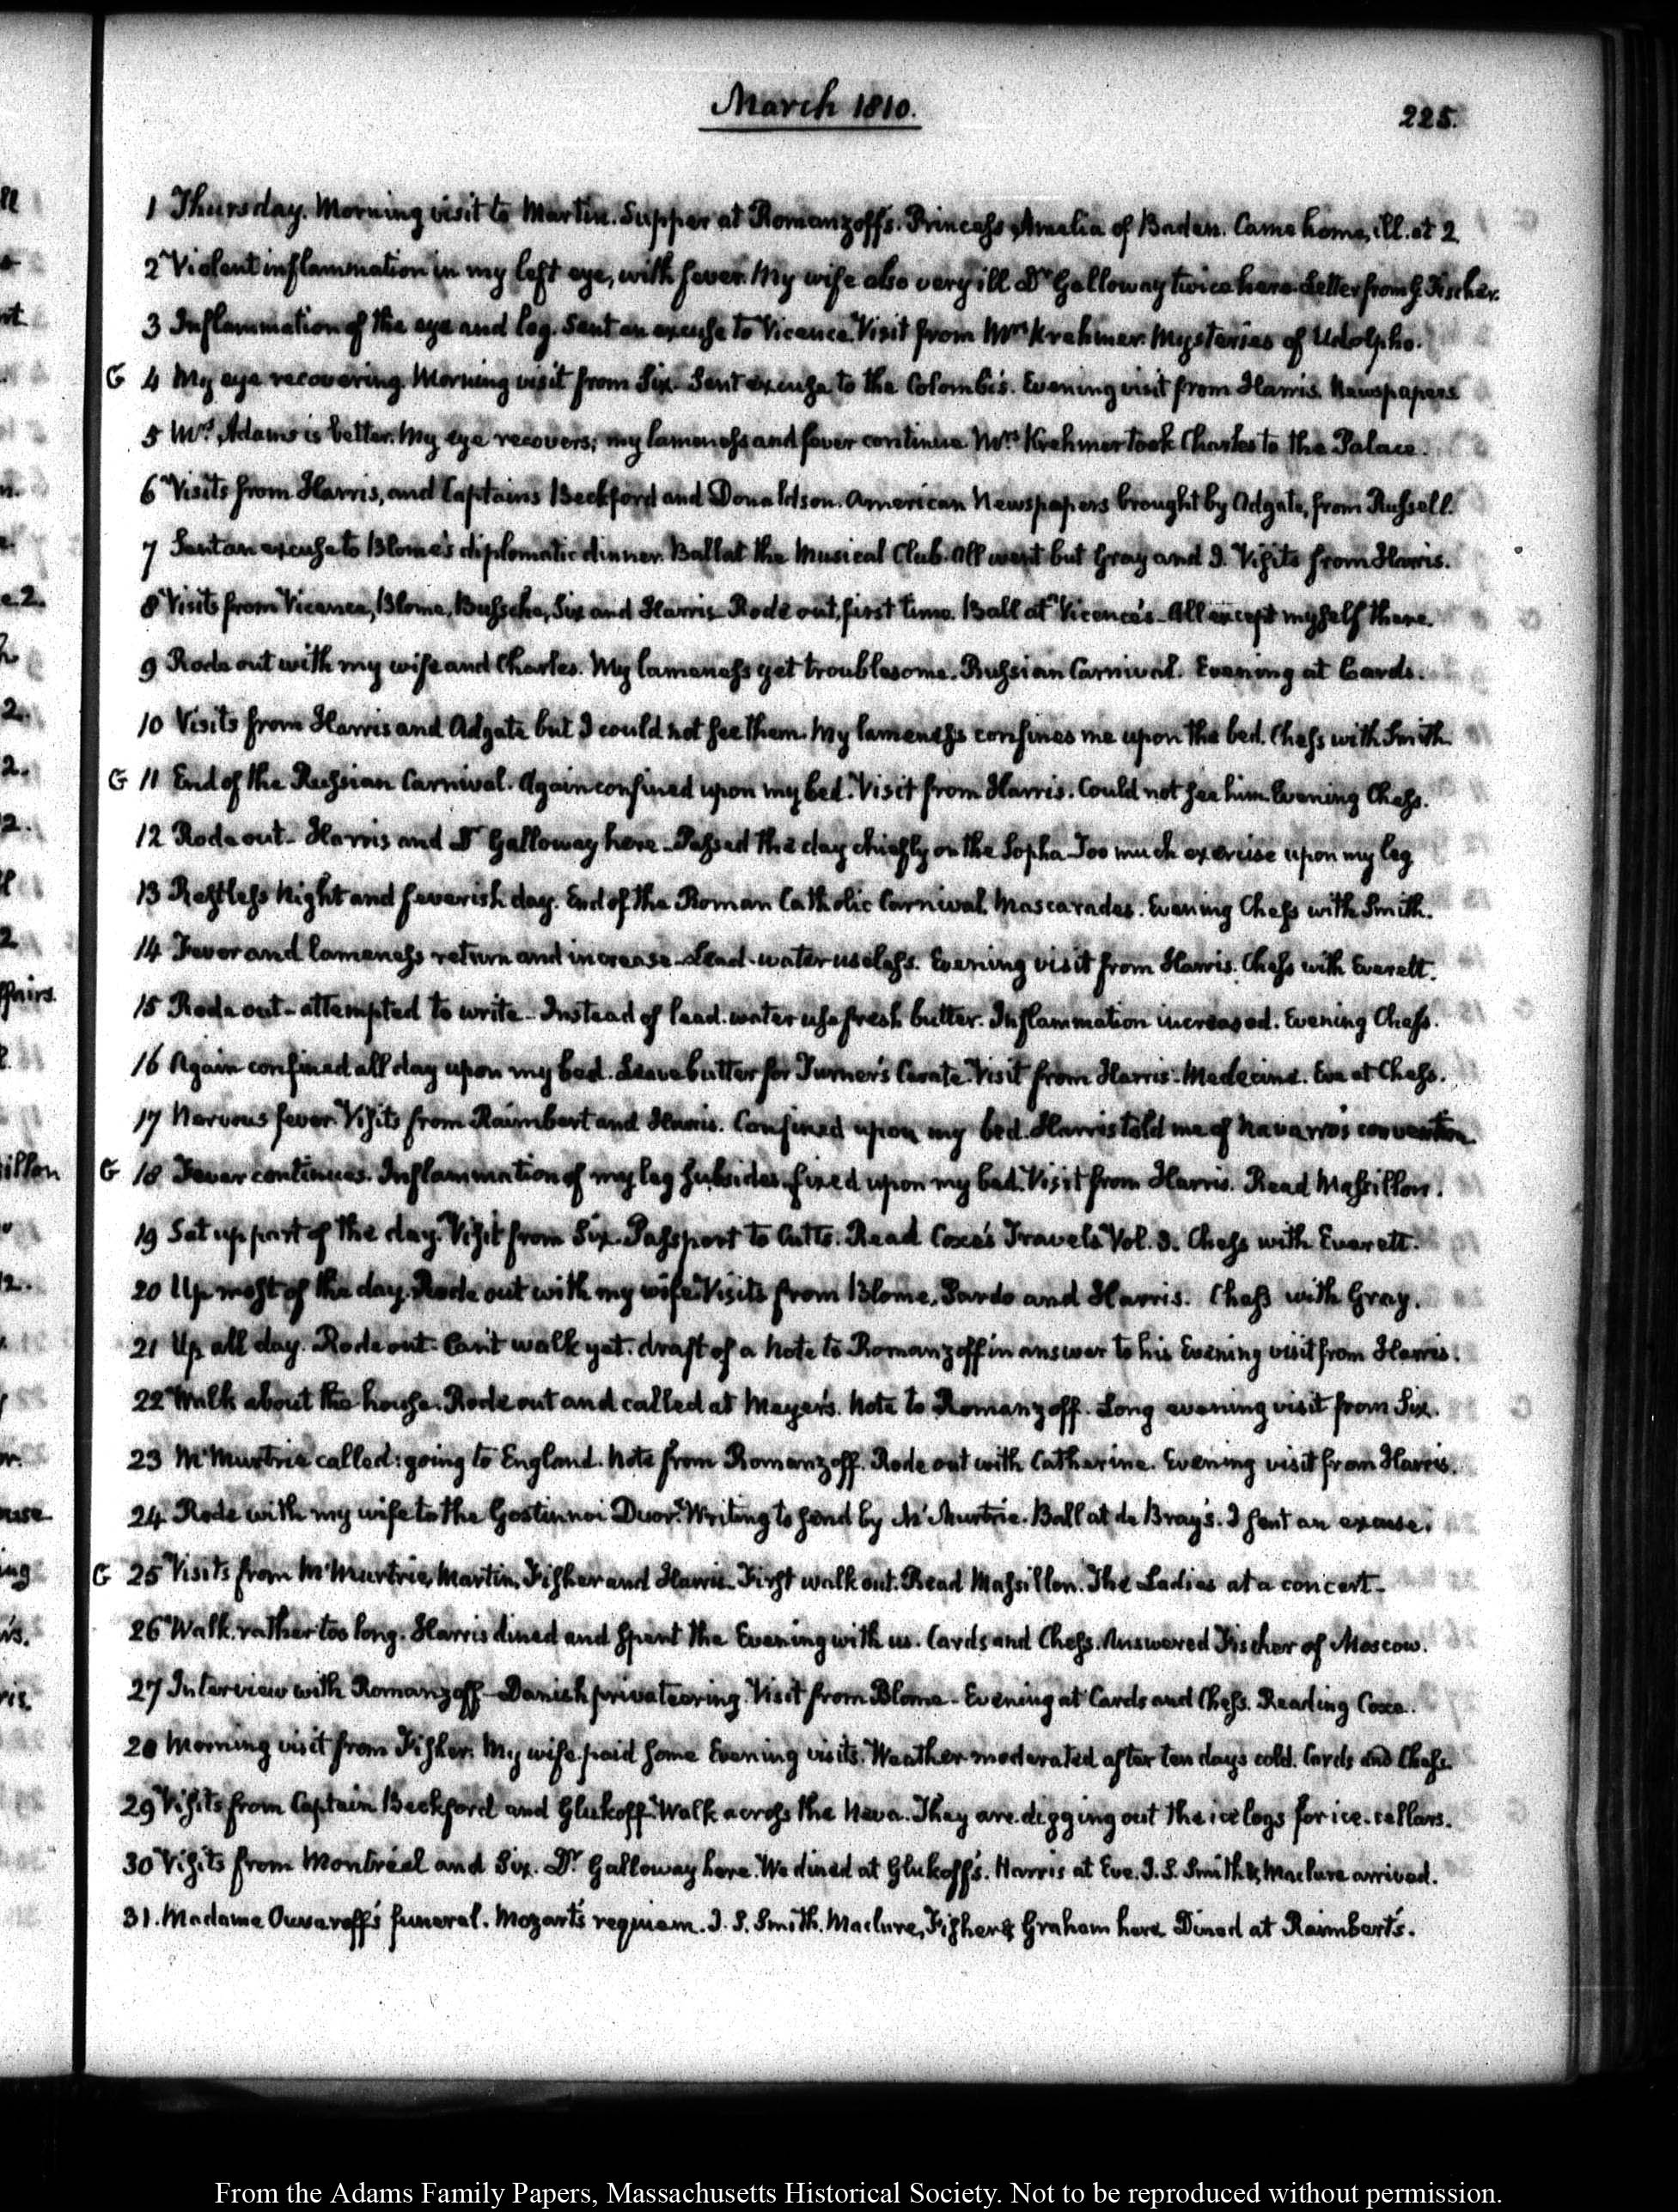 March 1810.
225.
1 Thursday. Morning visit to Martin. Supper at Romanzoff's. Princess Amalia of Baden. Came home, ill. at 2
2 Violent inflammation in my left eye, with fever. My wife also very ill Dr Galloway twice here. Letter from G. Fischer.
3 Inflammation of the eye and leg. Sent an excuse to Vicence. Visit from Mrs Krehmer. Mysteries of Udolpho.
G 4 My eye recovering. Morning visit from Six. Sent excuse to the Colombi's. Evening visit from Harris. Newspapers
5 Mrs Adams is better. My eye recovers; my lameness and fever continue. Mrs Krehmer took Charles to the Palace.
6 Visits from Harris, and Captains Beckford and Donaldson. American Newspapers brought by Adgate, from Russell.
7 Sent an excuse to Blome's diplomatic dinner. Ball at the Musical Club. All went but Gray and I. Visits from Harris.
8 Visits from Vicence, Blome, Bussche, Six and Harris. Rode out, first time. Ball at Vicence's. All except myself there.
9 Rode out with my wife and Charles. My lameness yet troublesome. Russian Carnival. Evening at Cards.
10 Visits from Harris and Adgate but I could not see them. My lameness confines me upon the bed. Chess with Smith.
G 11 End of the Russian Carnival. Again confined upon my bed. Visit from Harris. Could not see him. Evening Chess.
12 Rode out- Harris and Dr Galloway here- Passed the day chiefly on the Sopha- Too much exercise upon my leg
13 Restless Night and feverish day. End of the Roman Catholic Carnival. Mascarades. Evening Chess with Smith.
14 Fever and lameness return and increase- Lead-water useless. Evening visit from Harris. Chess with Everett.
15 Rode out- attempted to write- Instead of lead-water use fresh butter. Inflammation increased. Evening Chess.
16 Again confined all day upon my bed. Leave butter for Turner's Cerate. Visit from Harris. Medecine. Eve at Chess.
17 Nervous fever. Visits from Raimbert and Harris. Confined upon my bed. Harris told me of Navarro's convention
G 18 Fever continues. Inflammation of my leg subsides. fixed upon my bed. Visit from Harris. Read Massillon.
19 Sat up part of the day. Visit from Six. Passport to Cutts. Read Coxe's Travels Vol. 3. Chess with Everett.
20 Up most of the day. Rode out with my wife. Visits from Blome, Pardo and Harris. Chess with Gray.
21 Up all day. Rode out. Can't walk yet. draft of a Note to Romanzoff in answer to his Evening visit from Harris.
22 Walk about the house. Rode out and called at Meyer's. Note to Romanzoff. Long evening visit from Six.
23 McMurtrie called: going to England. Note from Romanzoff. Rode out with Catherine. Evening visit from Harris.
24 Rode with my wife to the Gostinnoi Duor. Writing to send by McMurtrie. Ball at de Bray's. I sent an excuse.
G 25 Visits from McMurtrie, Martin, Fisher and Harris. First walk out. Read Massillon. The Ladies at a concert-
26 Walk. rather too long. Harris dined and spent the Evening with us. Cards and Chess. Answered Fischer of Moscow.
27 Interview with Romanzoff- Danish privateering. Visit from Blome- Evening at Cards and Chess. Reading Coxe.
28 Morning visit from Fisher. My wife paid some Evening visits. Weather moderated after ten days cold. Cards and Chess.
29 Visits from Captain Beckford and Glukoff. Walk across the Neva. They are digging out the ice logs for ice-cellars.
30 Visits from Montréal and Six. Dr Galloway here. We dined at Glukoff's. Harris at Eve. J. S. Smith & Maclure arrived.
31. Madame Ouvaroff's funeral. Mozart's requiem. J. S. Smith. Maclure, Fisher & Graham here. Dined at Raimbert's.
From the Adams Family Papers, Massachusetts Historical Society. Not to be reproduced without permission.